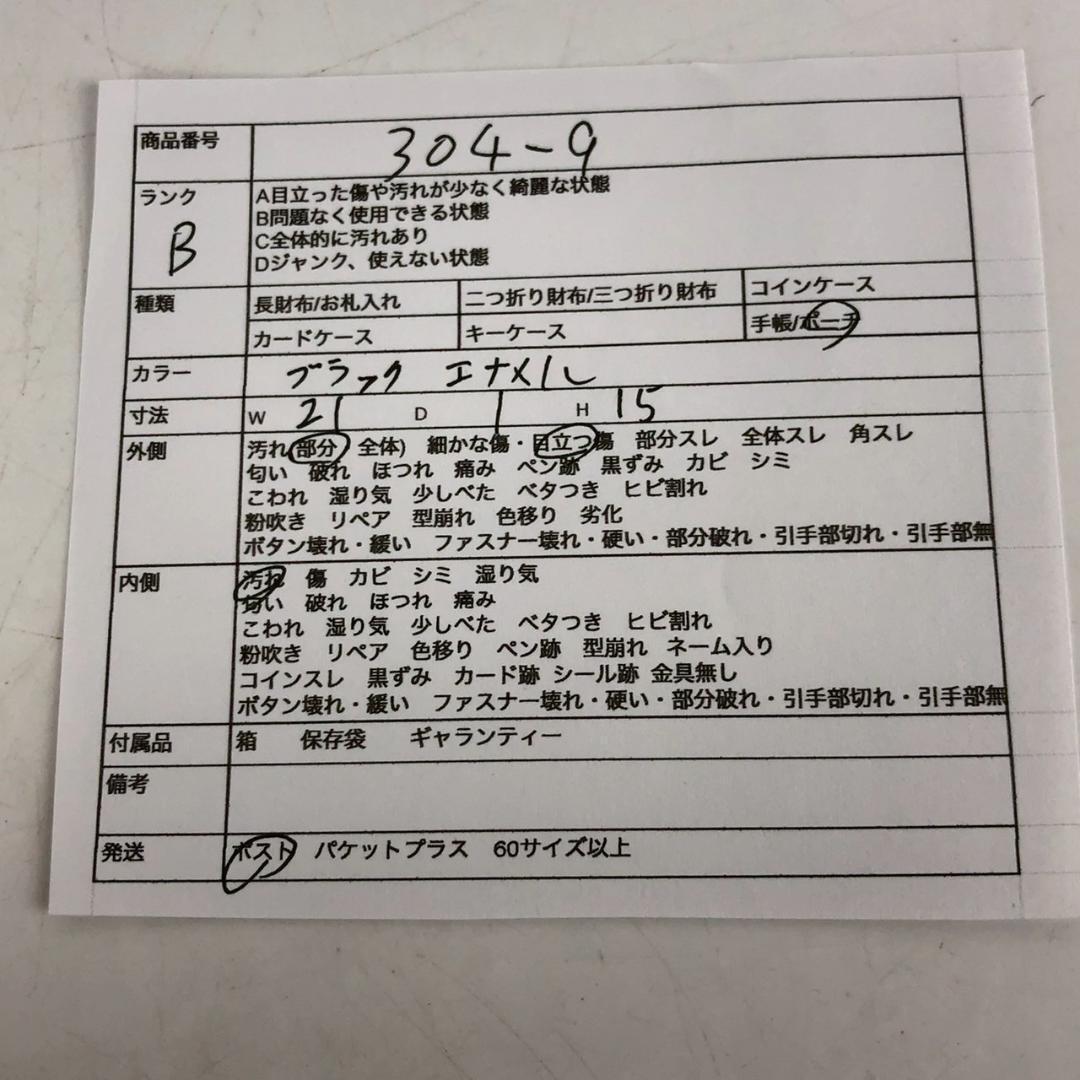 商品番号 304-9
ランク B
A目立った傷や汚れが少なく綺麗な状態
B問題なく使用できる状態
C全体的に汚れあり
Dジャンク、使えない状態
種類 長財布/お札入れ 二つ折り財布/三つ折り財布 コインケース
カードケース キーケース 手帳/ポーチ
カラー ブラック エナメル
寸法 W 21 D 1 H 15
外側 汚れ(部分 全体) 細かな傷・目立つ傷 部分スレ 全体スレ 角スレ
匂い 破れ ほつれ 痛み ペン跡 黒ずみ カビ シミ
こわれ 湿り気 少しべた ベタつき ヒビ割れ
粉吹き リペア 型崩れ 色移り 劣化
ボタン壊れ・緩い ファスナー壊れ・硬い・部分破れ・引手部切れ・引手部無
内側 汚れ 傷 カビ シミ 湿り気
匂い 破れ ほつれ 痛み
こわれ 湿り気 少しべた ベタつき ヒビ割れ
粉吹き リペア 色移り ペン跡 型崩れ ネーム入り
コインスレ 黒ずみ カード跡 シール跡 金具無し
ボタン壊れ・緩い ファスナー壊れ・硬い・部分破れ・引手部切れ・引手部無
付属品 箱 保存袋 ギャランティー
備考
発送 ポスト パケットプラス 60サイズ以上